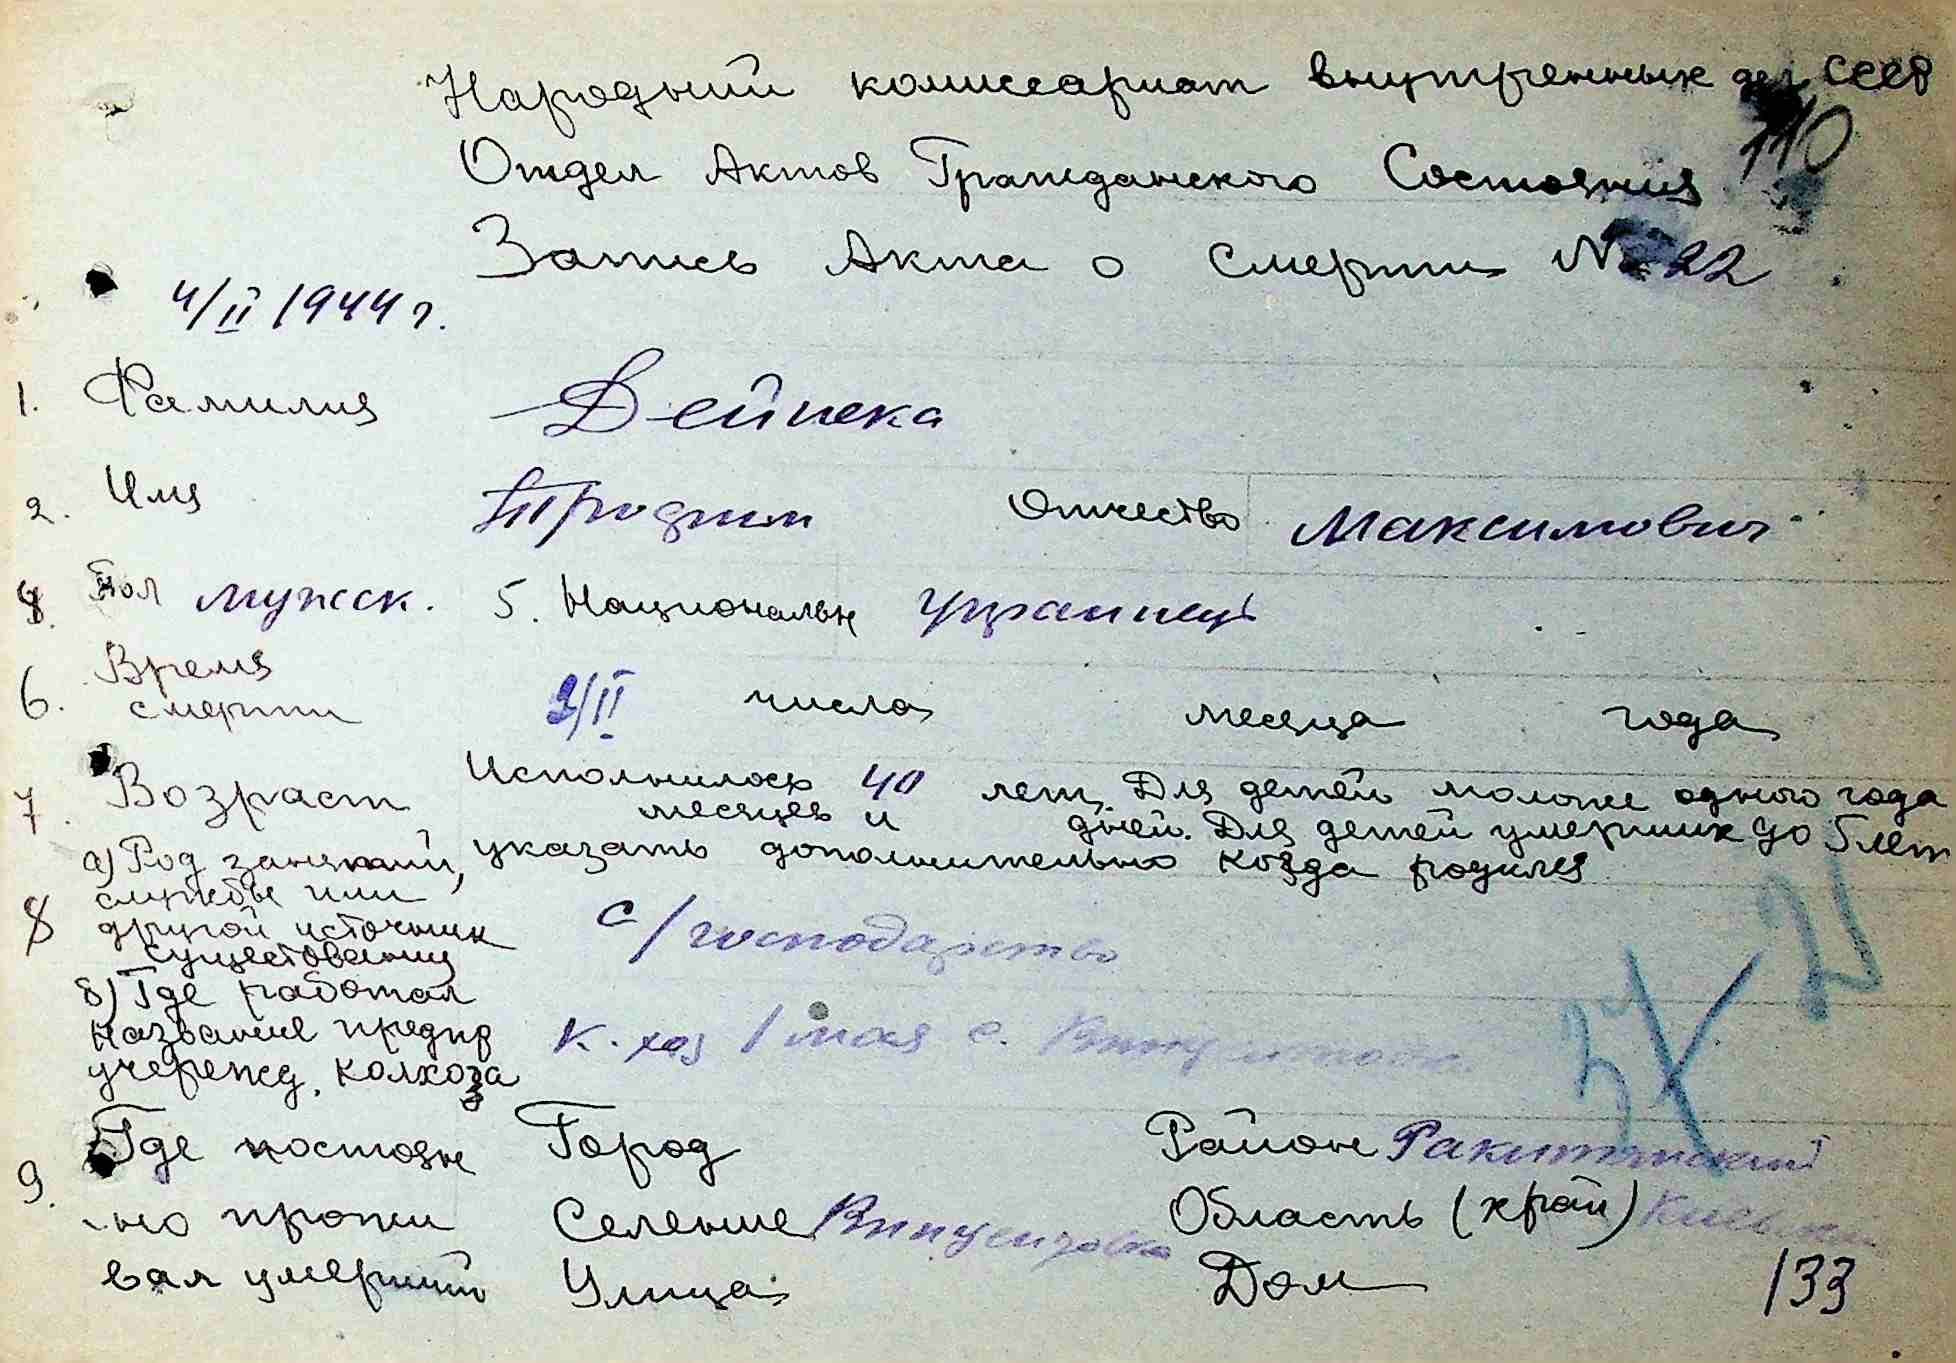 Народний комиссариат внутренных дел СССР
110
Отдел Актов Гражданского Состояния
Запись Акта о смерти № 22
4/II 1944 г.
1. Фамилия Дейнека
2. Имя Отчество Максимович
Пол мужск. 5. Национальн Украинец
6. Время смерти 2/II числа месяца года
7. Возраст Исполнилось 40 лет. Для детей моложе одного года
месяцев и дней. Для детей умерших до 5 лет
указать дополнительно когда родился
8 а) Род занятий,
службы или
другой источник
существования
с/господарство
б) Где работал
название предпр
учережд. колхоза
К.хоз 1 мая с.
9. Где постоян Город Район Ракитянский
но прожи Селение Область (край) Киевск
вал умерший Улица Дом
133